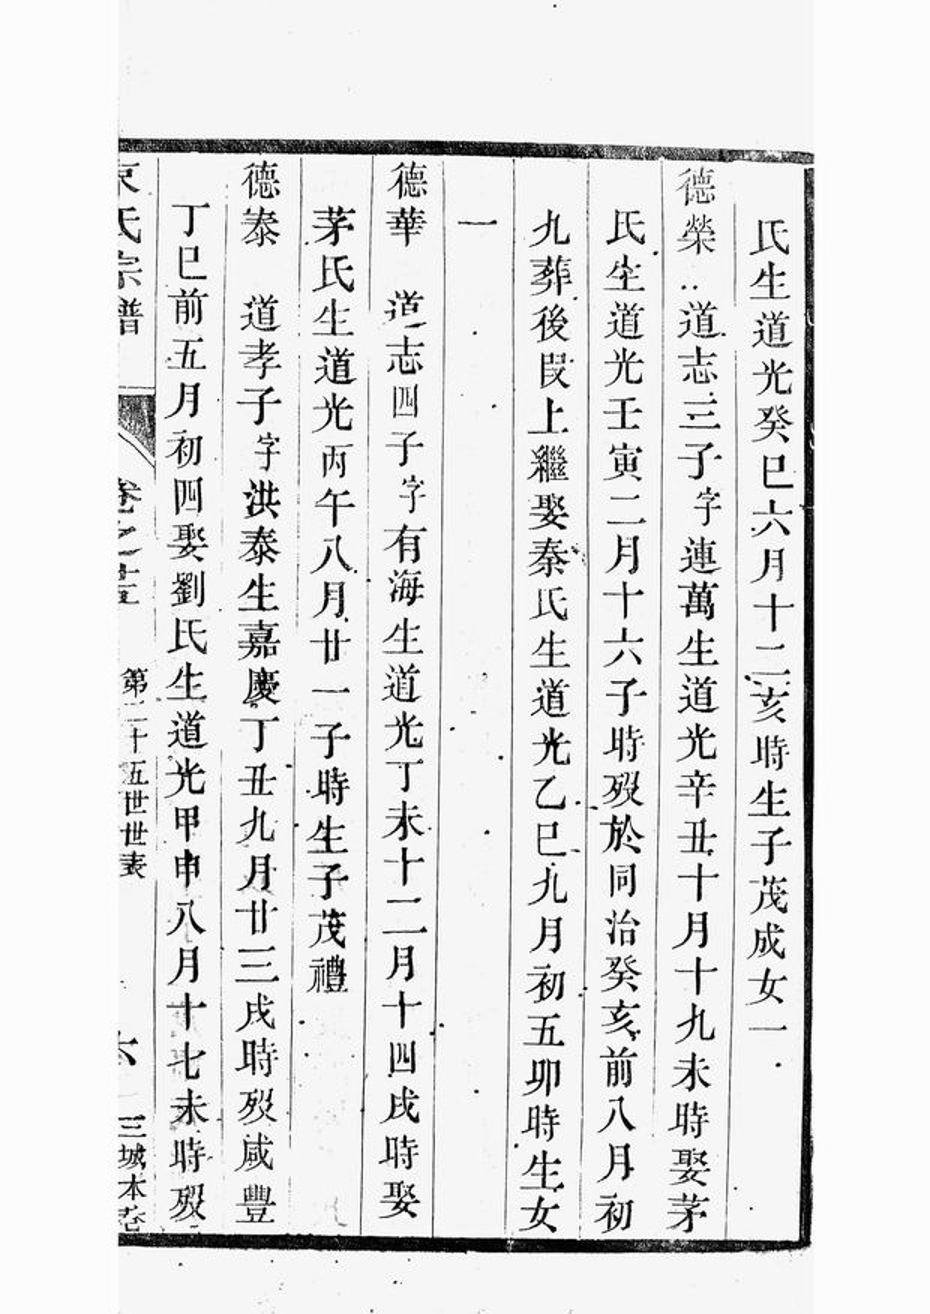 氏生道光癸巳六月十二亥時生子茂成女一
德榮 道志三子字連萬生道光辛丑十月十九未時娶茅
氏生道光壬寅二月十六子時歿於同治癸亥前八月初
九葬後叚上繼娶秦氏生道光乙巳九月初五卯時生女
一
德華 道志四子字有海生道光丁未十二月十四戌時娶
茅氏生道光丙午八月廿一子時生子茂禮
德泰 道孝子字洪泰生嘉慶丁丑九月廿三戌時歿咸豐
丁巳前五月初四娶劉氏生道光甲申八月十七未時歿
氏宗譜
卷之
第二十五世世表
六
三城本